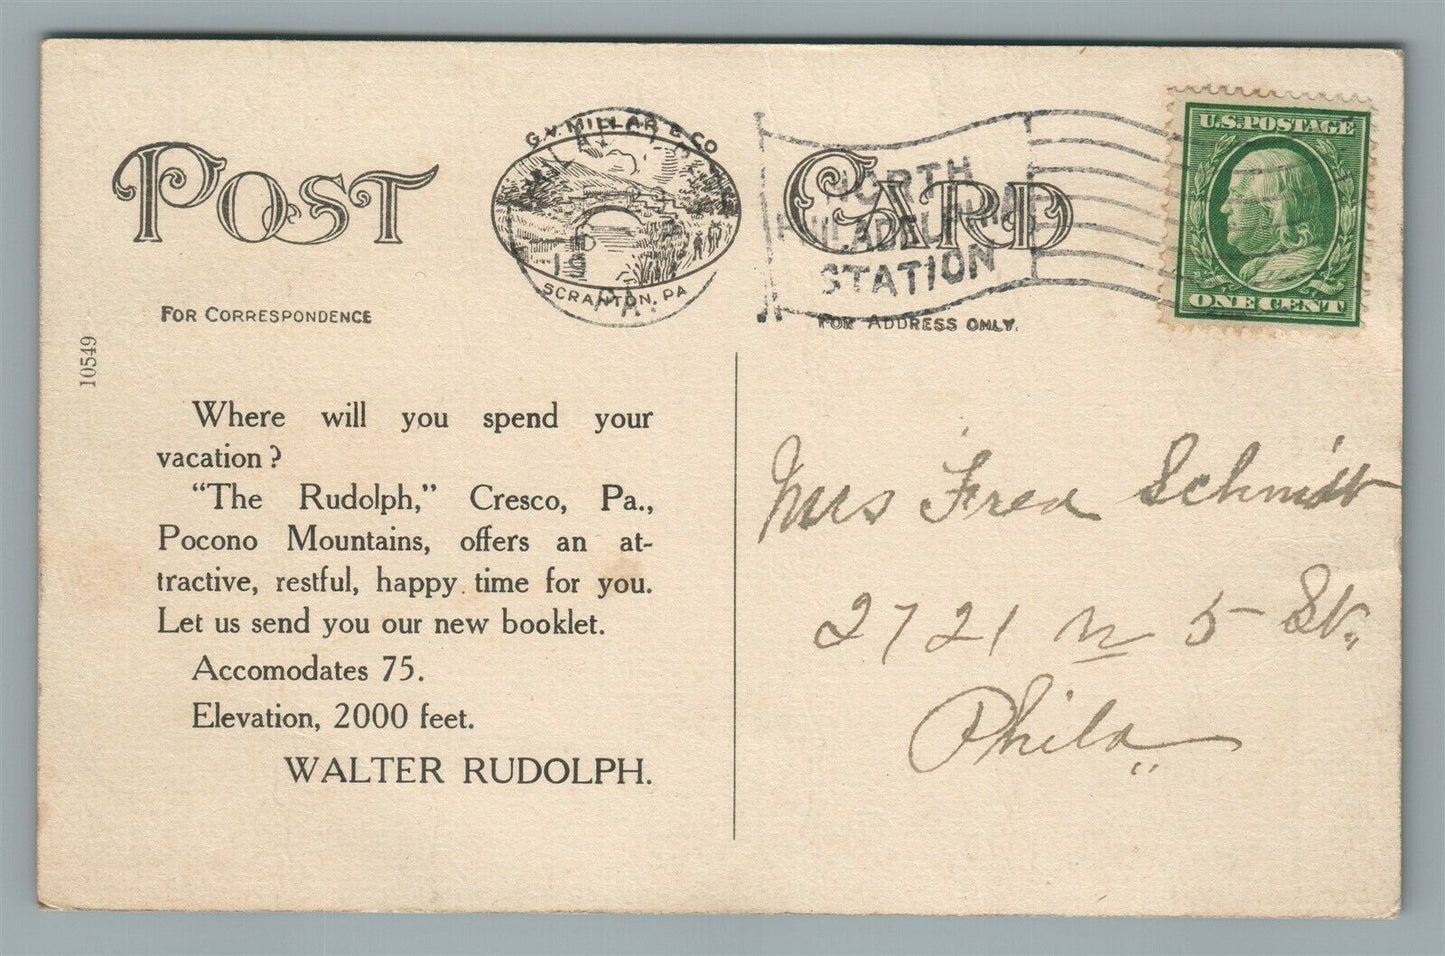 POST CARD
G.V. MILLAR & CO
SCRANTON, PA
PA.
NORTH
PHILADELPHIA
STATION
U.S. POSTAGE
ONE CENT
FOR CORRESPONDENCE
FOR ADDRESS ONLY.
10549
Where will you spend your
vacation?
"The Rudolph," Cresco, Pa.,
Pocono Mountains, offers an at-
tractive, restful, happy time for you.
Let us send you our new booklet.
Accomodates 75.
Elevation, 2000 feet.
WALTER RUDOLPH.
Mrs Fred Schmidt
2721 N 5 St.
Phila